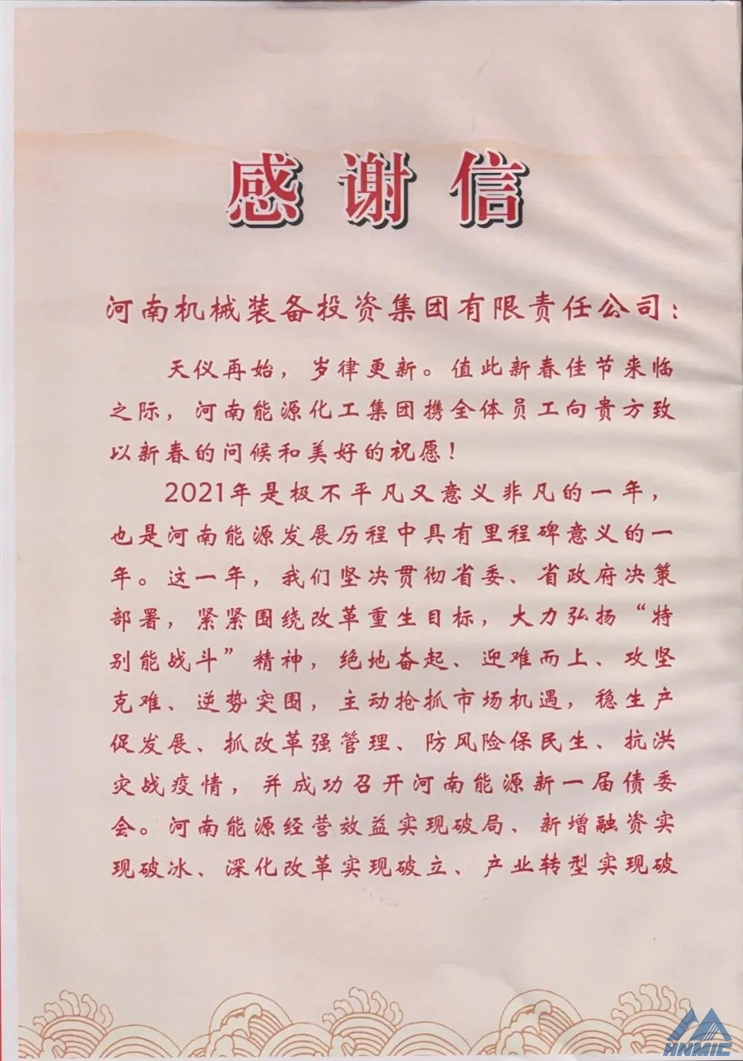 感谢信
河南机械装备投资集团有限责任公司：
天仪再始，岁律更新。值此新春佳节来临
之际，河南能源化工集团携全体员工向贵方致
以新春的问候和美好的祝愿！
2021年是极不平凡又意义非凡的一年，
也是河南能源发展历程中具有里程碑意义的一
年。这一年，我们坚决贯彻省委、省政府决策
部署，紧紧围绕改革重生目标，大力弘扬“特
别能战斗”精神，绝地奋起、迎难而上、攻坚
克难、逆势突围，主动抢抓市场机遇，稳生产
促发展、抓改革强管理、防风险保民生、抗洪
灾战疫情，并成功召开河南能源新一届债委
会。河南能源经营效益实现破局、新增融资实
现破冰、深化改革实现破立、产业转型实现破
HNMIC